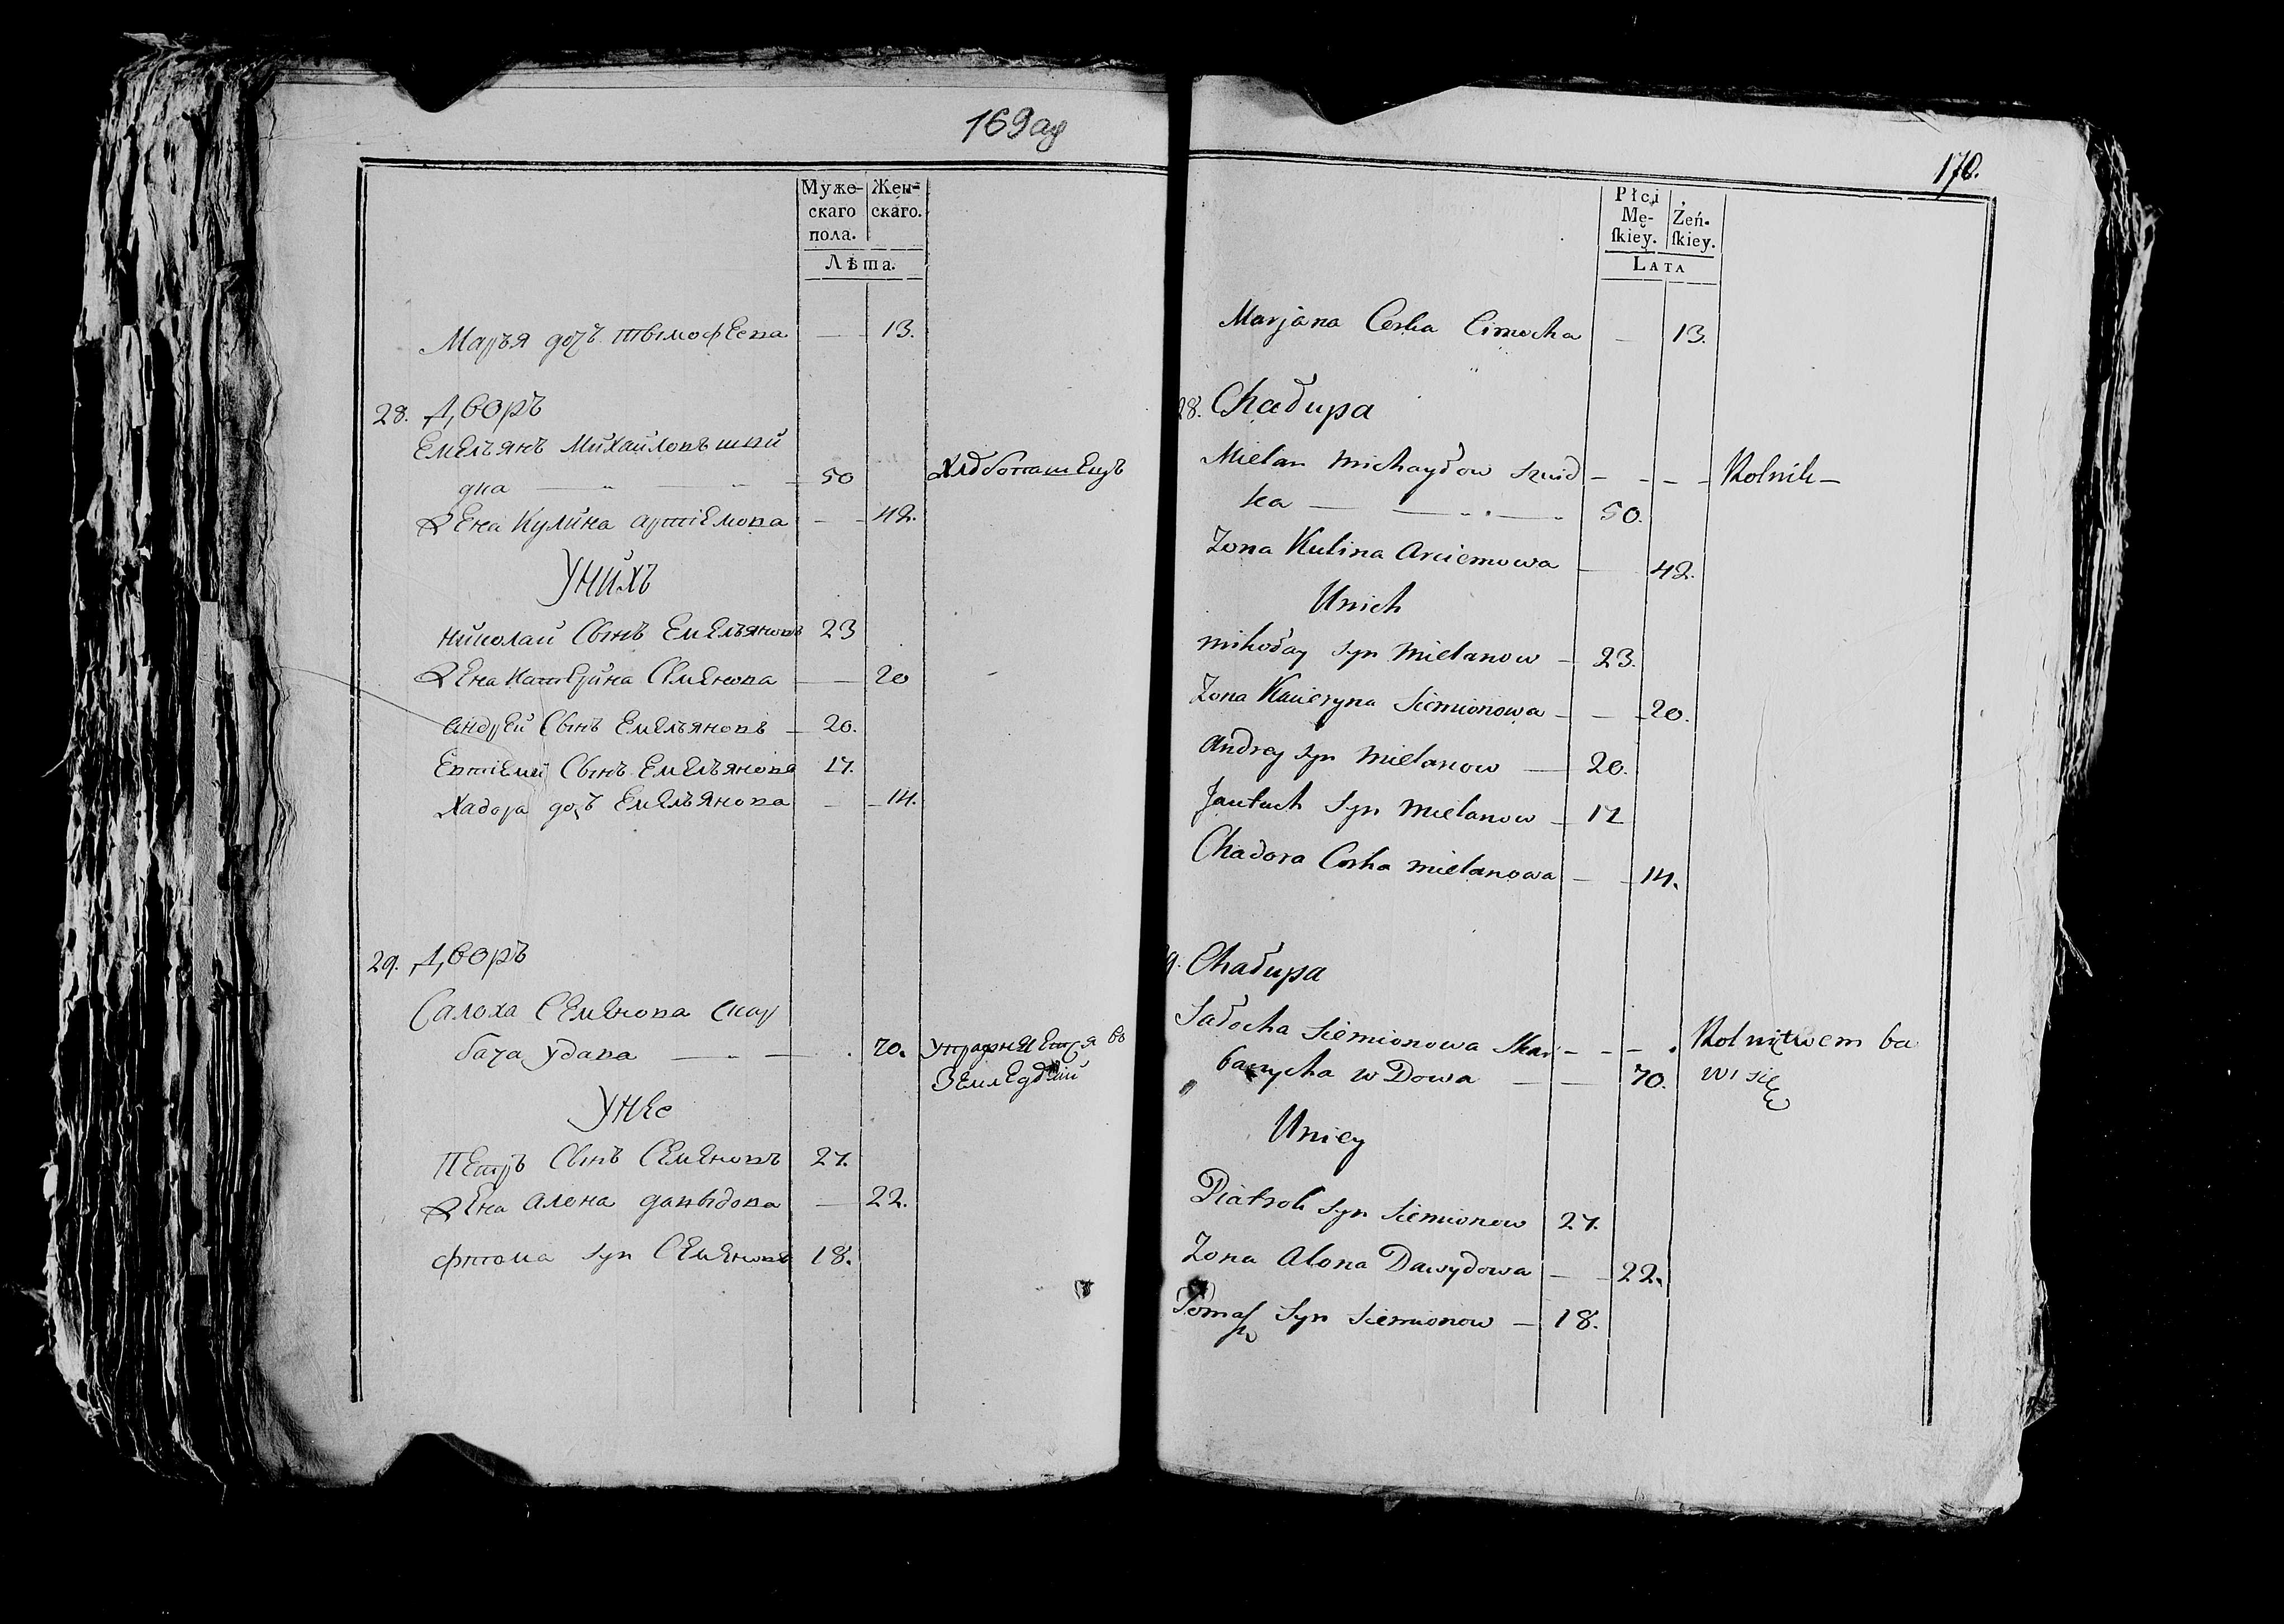 169 об
Муже-
скаго
пола.
Жен-
скаго.
Лѣта.
Марья дочъ тымофеева — 13.
28. Дворъ
Емельянъ Михайловъ шви
дка — 50 Хлѣбопашецъ
Жена Кулина артіемова — 42.
У нихъ
николай Сынъ Емельяновъ 23
Жена Катерина Семенова — 20
андрей Сынъ Емельяновъ — 20.
Евтіемй Сынъ Емельяновъ 17.
Хадора дочъ Емельянова — 14.
29. Дворъ
Салоха Семенова Скар
бача удава — 70. упражняется въ
Земледѣлій
У нее
Петръ Сынъ Семеновъ 27.
Жена алена давыдова — 22.
фтома syn Семеновъ 18.
170.
Płci
Mę-
ſkiey.
Żeń-
ſkiey.
LATA
Marjana Corka Cimocha — 13.
28. Chałupa
Mielan Michayłow szwid — Rolnik —
ka — 50.
Zona Kulina Arciemowa — 42.
Unich
mikołay syn Mielanow — 23.
Zona Kacieryna Siemionowa — 20.
Andrey syn Mielanow — 20.
Jautuch Syn Mielanow — 17
Chadora Corka mielanowa — 14.
9. Chałupa
Sałocha Siemionowa Skar — Rolnictwem ba
baczycha w Dowa — 70. wi się
Uniey
Piatrok syn Siemionow 27.
Zona Alona Dawydowa — 22.
Tomaſz Syn Siemionow — 18.